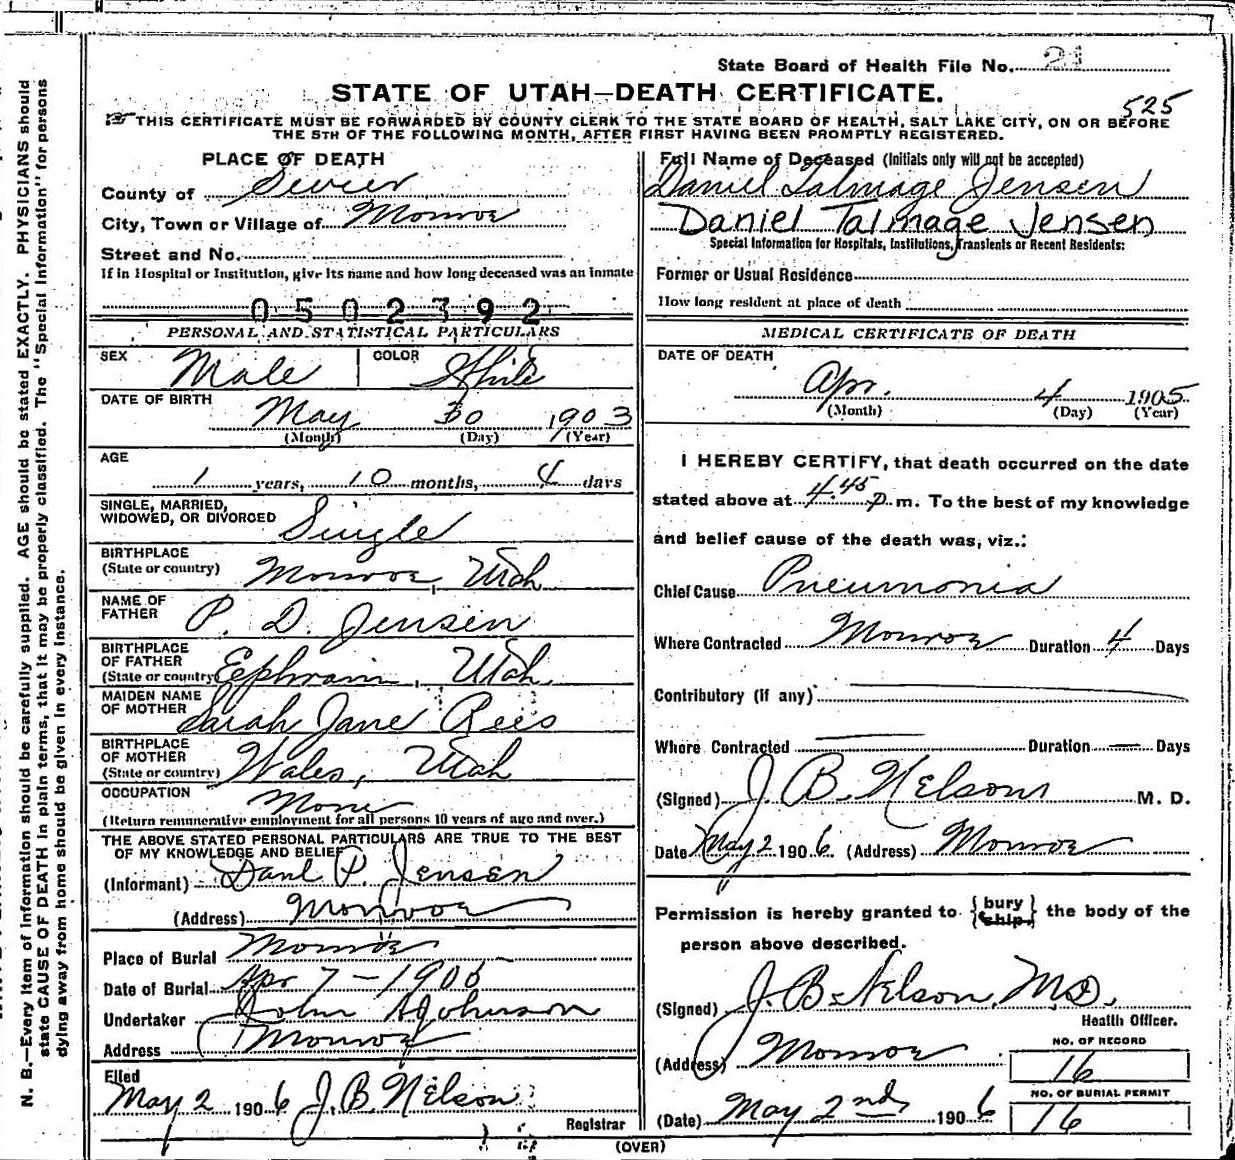 State Board of Health File No. 21
STATE OF UTAH—DEATH CERTIFICATE.
525
THIS CERTIFICATE MUST BE FORWARDED BY COUNTY CLERK TO THE STATE BOARD OF HEALTH, SALT LAKE CITY, ON OR BEFORE
THE 5TH OF THE FOLLOWING MONTH, AFTER FIRST HAVING BEEN PROMPTLY REGISTERED.
PLACE OF DEATH
County of Sevier
City, Town or Village of Monroe
Street and No.
If in Hospital or Institution, give its name and how long deceased was an inmate
0502392
PERSONAL AND STATISTICAL PARTICULARS
SEX Male COLOR White
DATE OF BIRTH
May 30 1903
(Month) (Day) (Year)
AGE
1 years, 10 months, 4 days
SINGLE, MARRIED,
WIDOWED, OR DIVORCED Single
BIRTHPLACE
(State or country) Monroe, Utah
NAME OF
FATHER P. D. Jensen
BIRTHPLACE
OF FATHER
(State or country) Eephraim, Utah
MAIDEN NAME
OF MOTHER Sarah Jane Rees
BIRTHPLACE
OF MOTHER
(State or country) Wales, Utah
OCCUPATION None
(Return remunerative employment for all persons 10 years of age and over.)
THE ABOVE STATED PERSONAL PARTICULARS ARE TRUE TO THE BEST
OF MY KNOWLEDGE AND BELIEF
(Informant) Danl P. Jensen
(Address) Monroe
Place of Burial Monroe
Date of Burial Apr 7 - 1906
Undertaker John A Johnson
Address Monroe
Filed
May 2 1906 J. B. Nelson
Registrar
Full Name of Deceased (Initials only will not be accepted)
Daniel Talmage Jensen
Daniel Talmage Jensen
Special Information for Hospitals, Institutions, Transients or Recent Residents:
Former or Usual Residence
How long resident at place of death
MEDICAL CERTIFICATE OF DEATH
DATE OF DEATH
Apr. 4 1905
(Month) (Day) (Year)
I HEREBY CERTIFY, that death occurred on the date
stated above at 4.45 p.m. To the best of my knowledge
and belief cause of the death was, viz.:
Chief Cause Pneumonia
Where Contracted Monroe Duration 4 Days
Contributory (if any)
Where Contracted — Duration — Days
(Signed) J. B. Nelson M. D.
Date May 2 1906. (Address) Monroe
Permission is hereby granted to {bury ship} the body of the
person above described.
(Signed) J. B. Nelson, M.D.
Health Officer.
(Address) Monroe
(Date) May 2nd 1906
NO. OF RECORD
16
NO. OF BURIAL PERMIT
16
(OVER)
N. B.—Every item of information should be carefully supplied. AGE should be stated EXACTLY. PHYSICIANS should
state CAUSE OF DEATH in plain terms, that it may be properly classified. The "Special Information" for persons
dying away from home should be given in every instance.